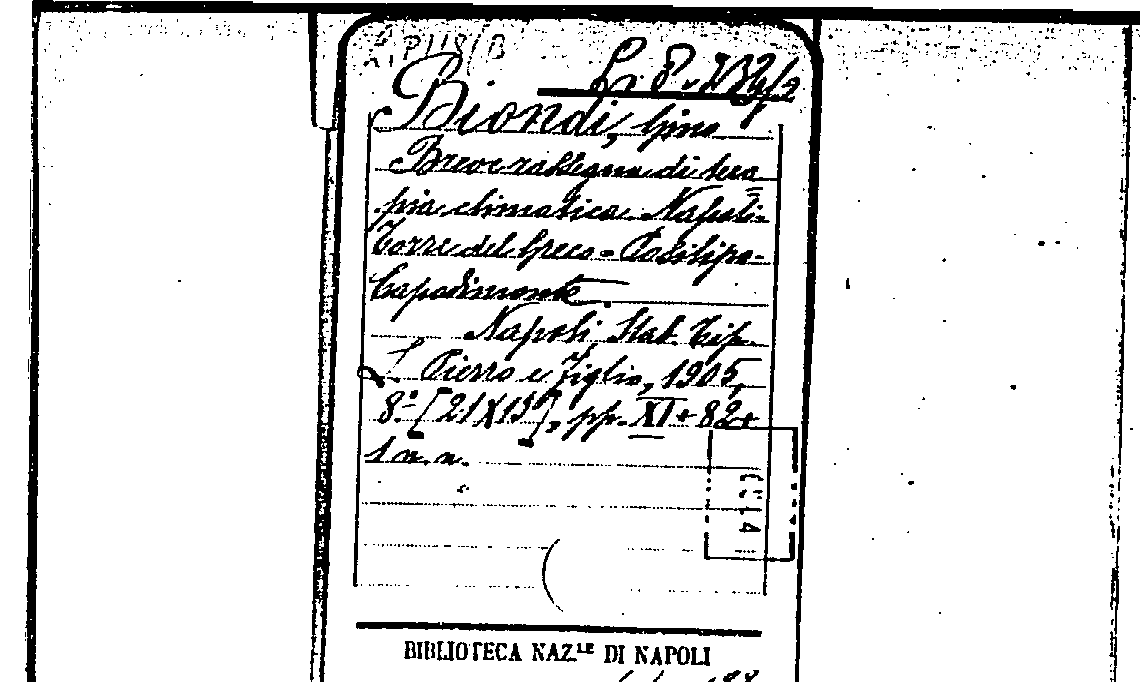 Biondi, Gino
Breve rassegna di tera
pia climatica. Napoli-
Torre del Greco - Posilipo-
Capodimonte.
Napoli Stab. Tip.
Pierro e Figlio, 1905,
8.º [21X13], pp. XI + 82+
1 n. n.
BIBLIOTECA NAZ.LE DI NAPOLI